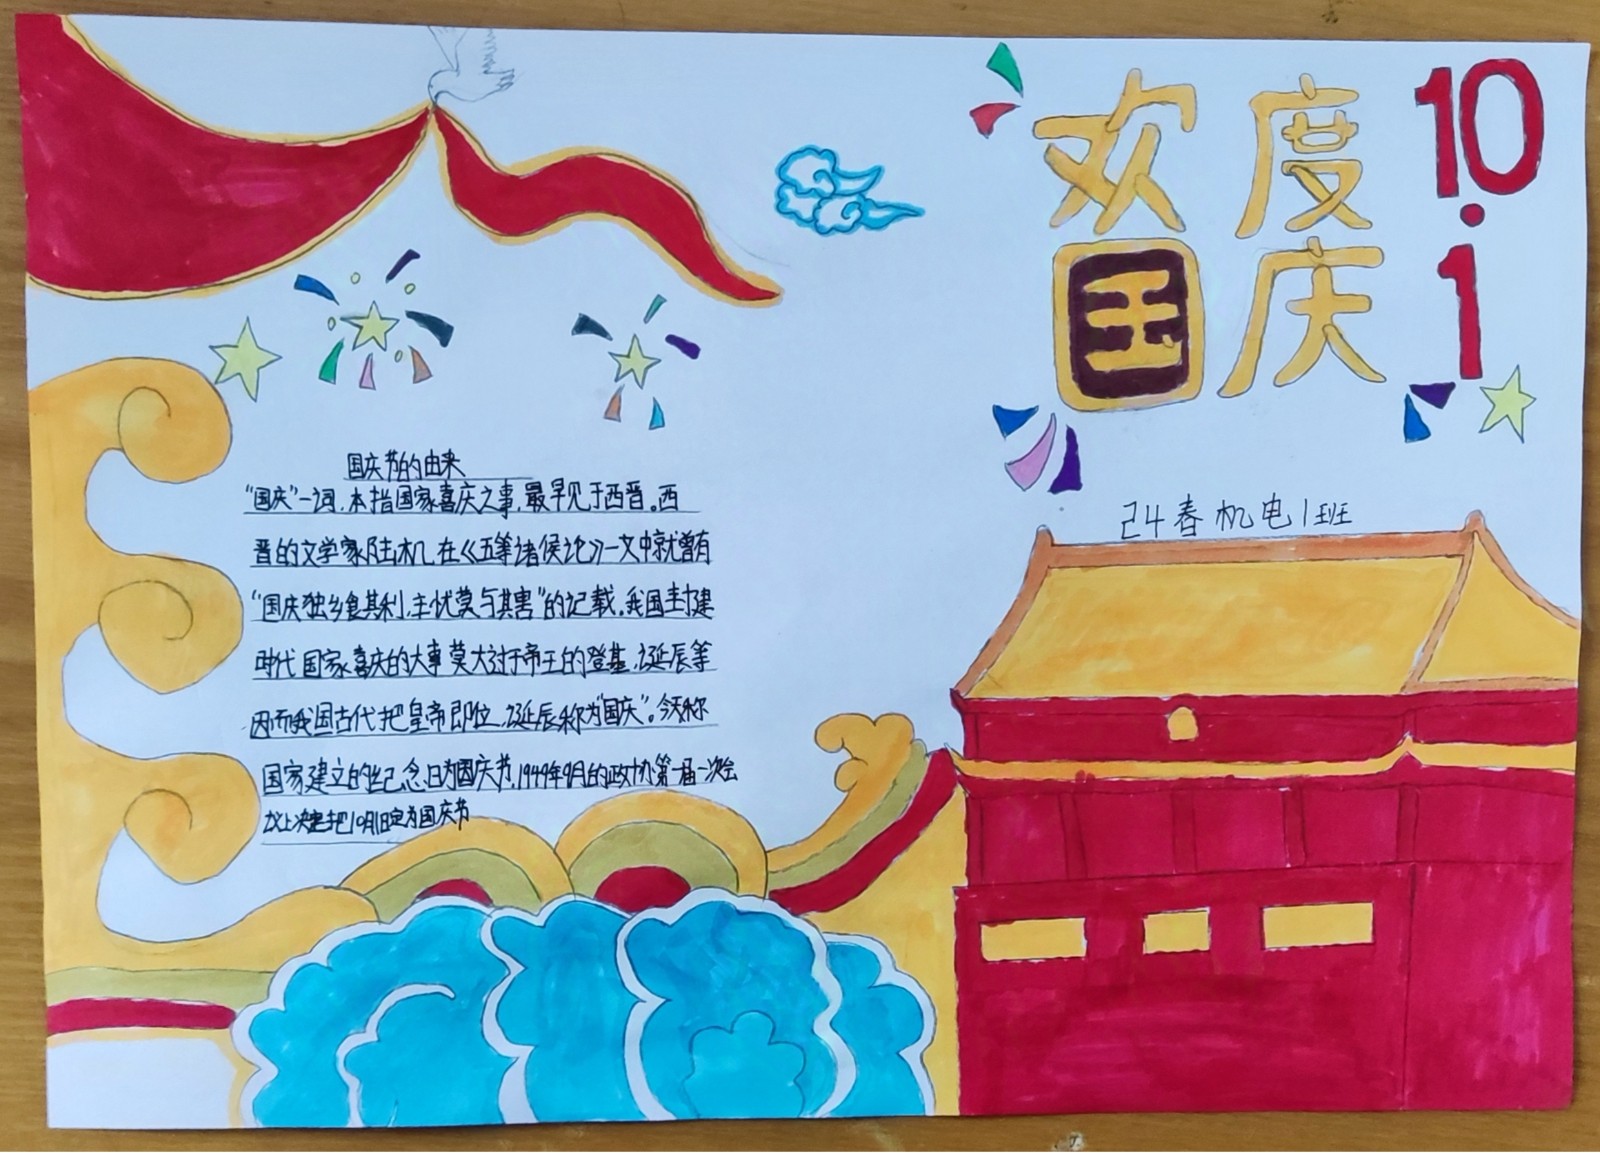 欢度
国庆
10.1
24春机电1班
国庆节的由来
“国庆”一词,本指国家喜庆之事,最早见于西晋。西
晋的文学家陆机,在《五等诸侯论》一文中就曾有
“国庆独乡食其利,主忧莫与其害”的记载,我国封建
时代国家喜庆的大事莫大过于帝王的登基、诞辰等
因而我国古代把皇帝即位、诞辰称为“国庆”。今天称
国家建立的纪念日为国庆节,1949年9月的政协第一届一次会
议上决定把10月1日定为国庆节